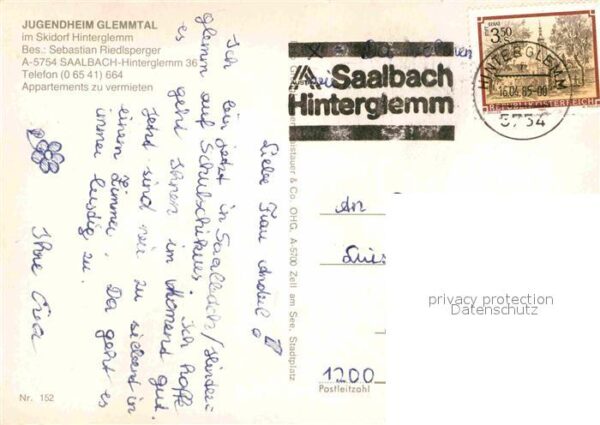 JUGENDHEIM GLEMMTAL
im Skidorf Hinterglemm
Bes.: Sebastian Riedlsperger
A-5754 SAALBACH-Hinterglemm 36
Telefon (0 65 41) 664
Appartements zu vermieten
Liebe Frau
Ich bin jetzt in Saalbach/Hinter=
glemm auf Schulschikurs. Ich hoffe
es geht Ihnen im Moment gut.
Jetzt sind wir zu siebent in
einem Zimmer. Da geht es
immer lustig zu.
Ihre Eva
Nr. 152
& Co. OHG, A-5700 Zell am See, Stadtplatz
Saalbach
Hinterglemm
3.50
REPUBLIK ÖSTERREICH
HINTERGLEMM
16.04.85-00
5754
An
1200
Postleitzahl
privacy protection
Datenschutz